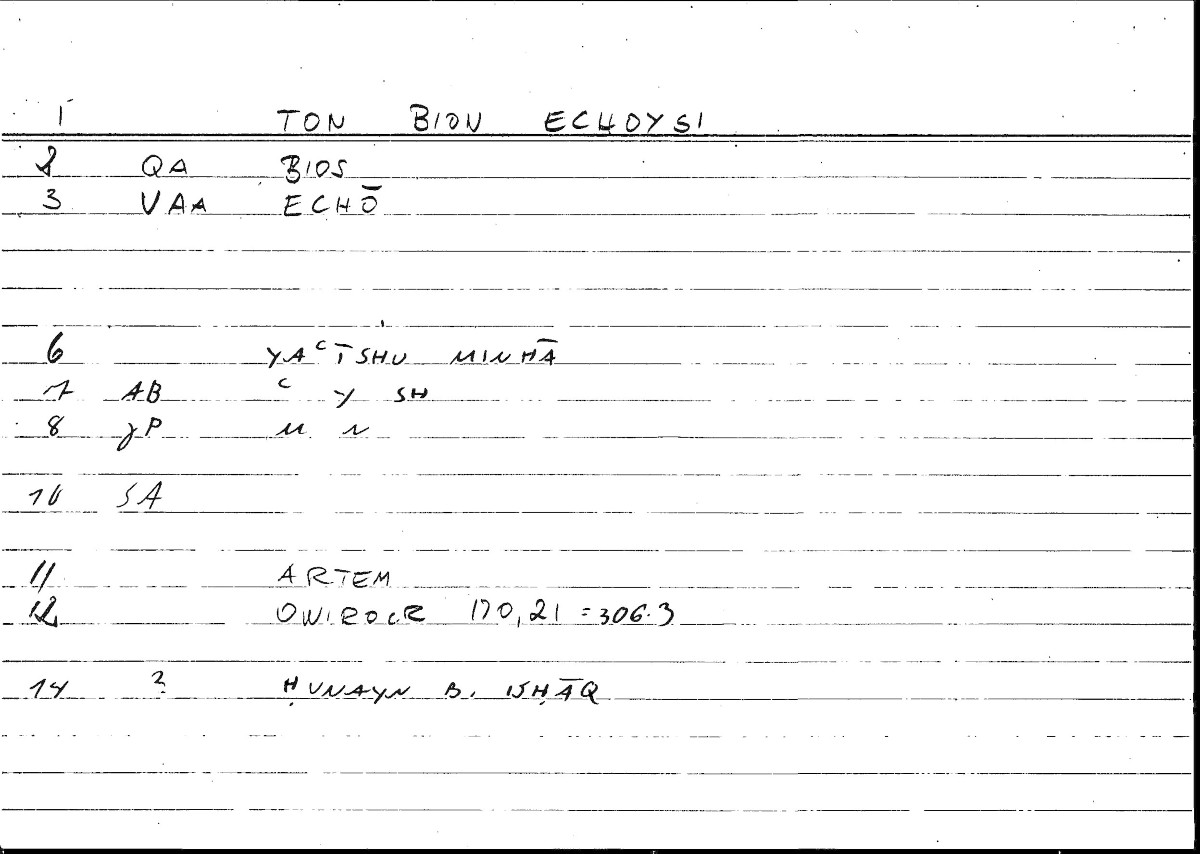 1 TON BION ECHOYSI
2 QA BIOS
3 VAA ECHŌ
6 YAᶜĪSHU MINHĀ
7 AB ᶜ Y SH
8 γP M N
10 SA
11 ARTEM
12 ONIROCR 170,21 = 306.3
14 ? ḤUNAYN B. ISḤĀQ